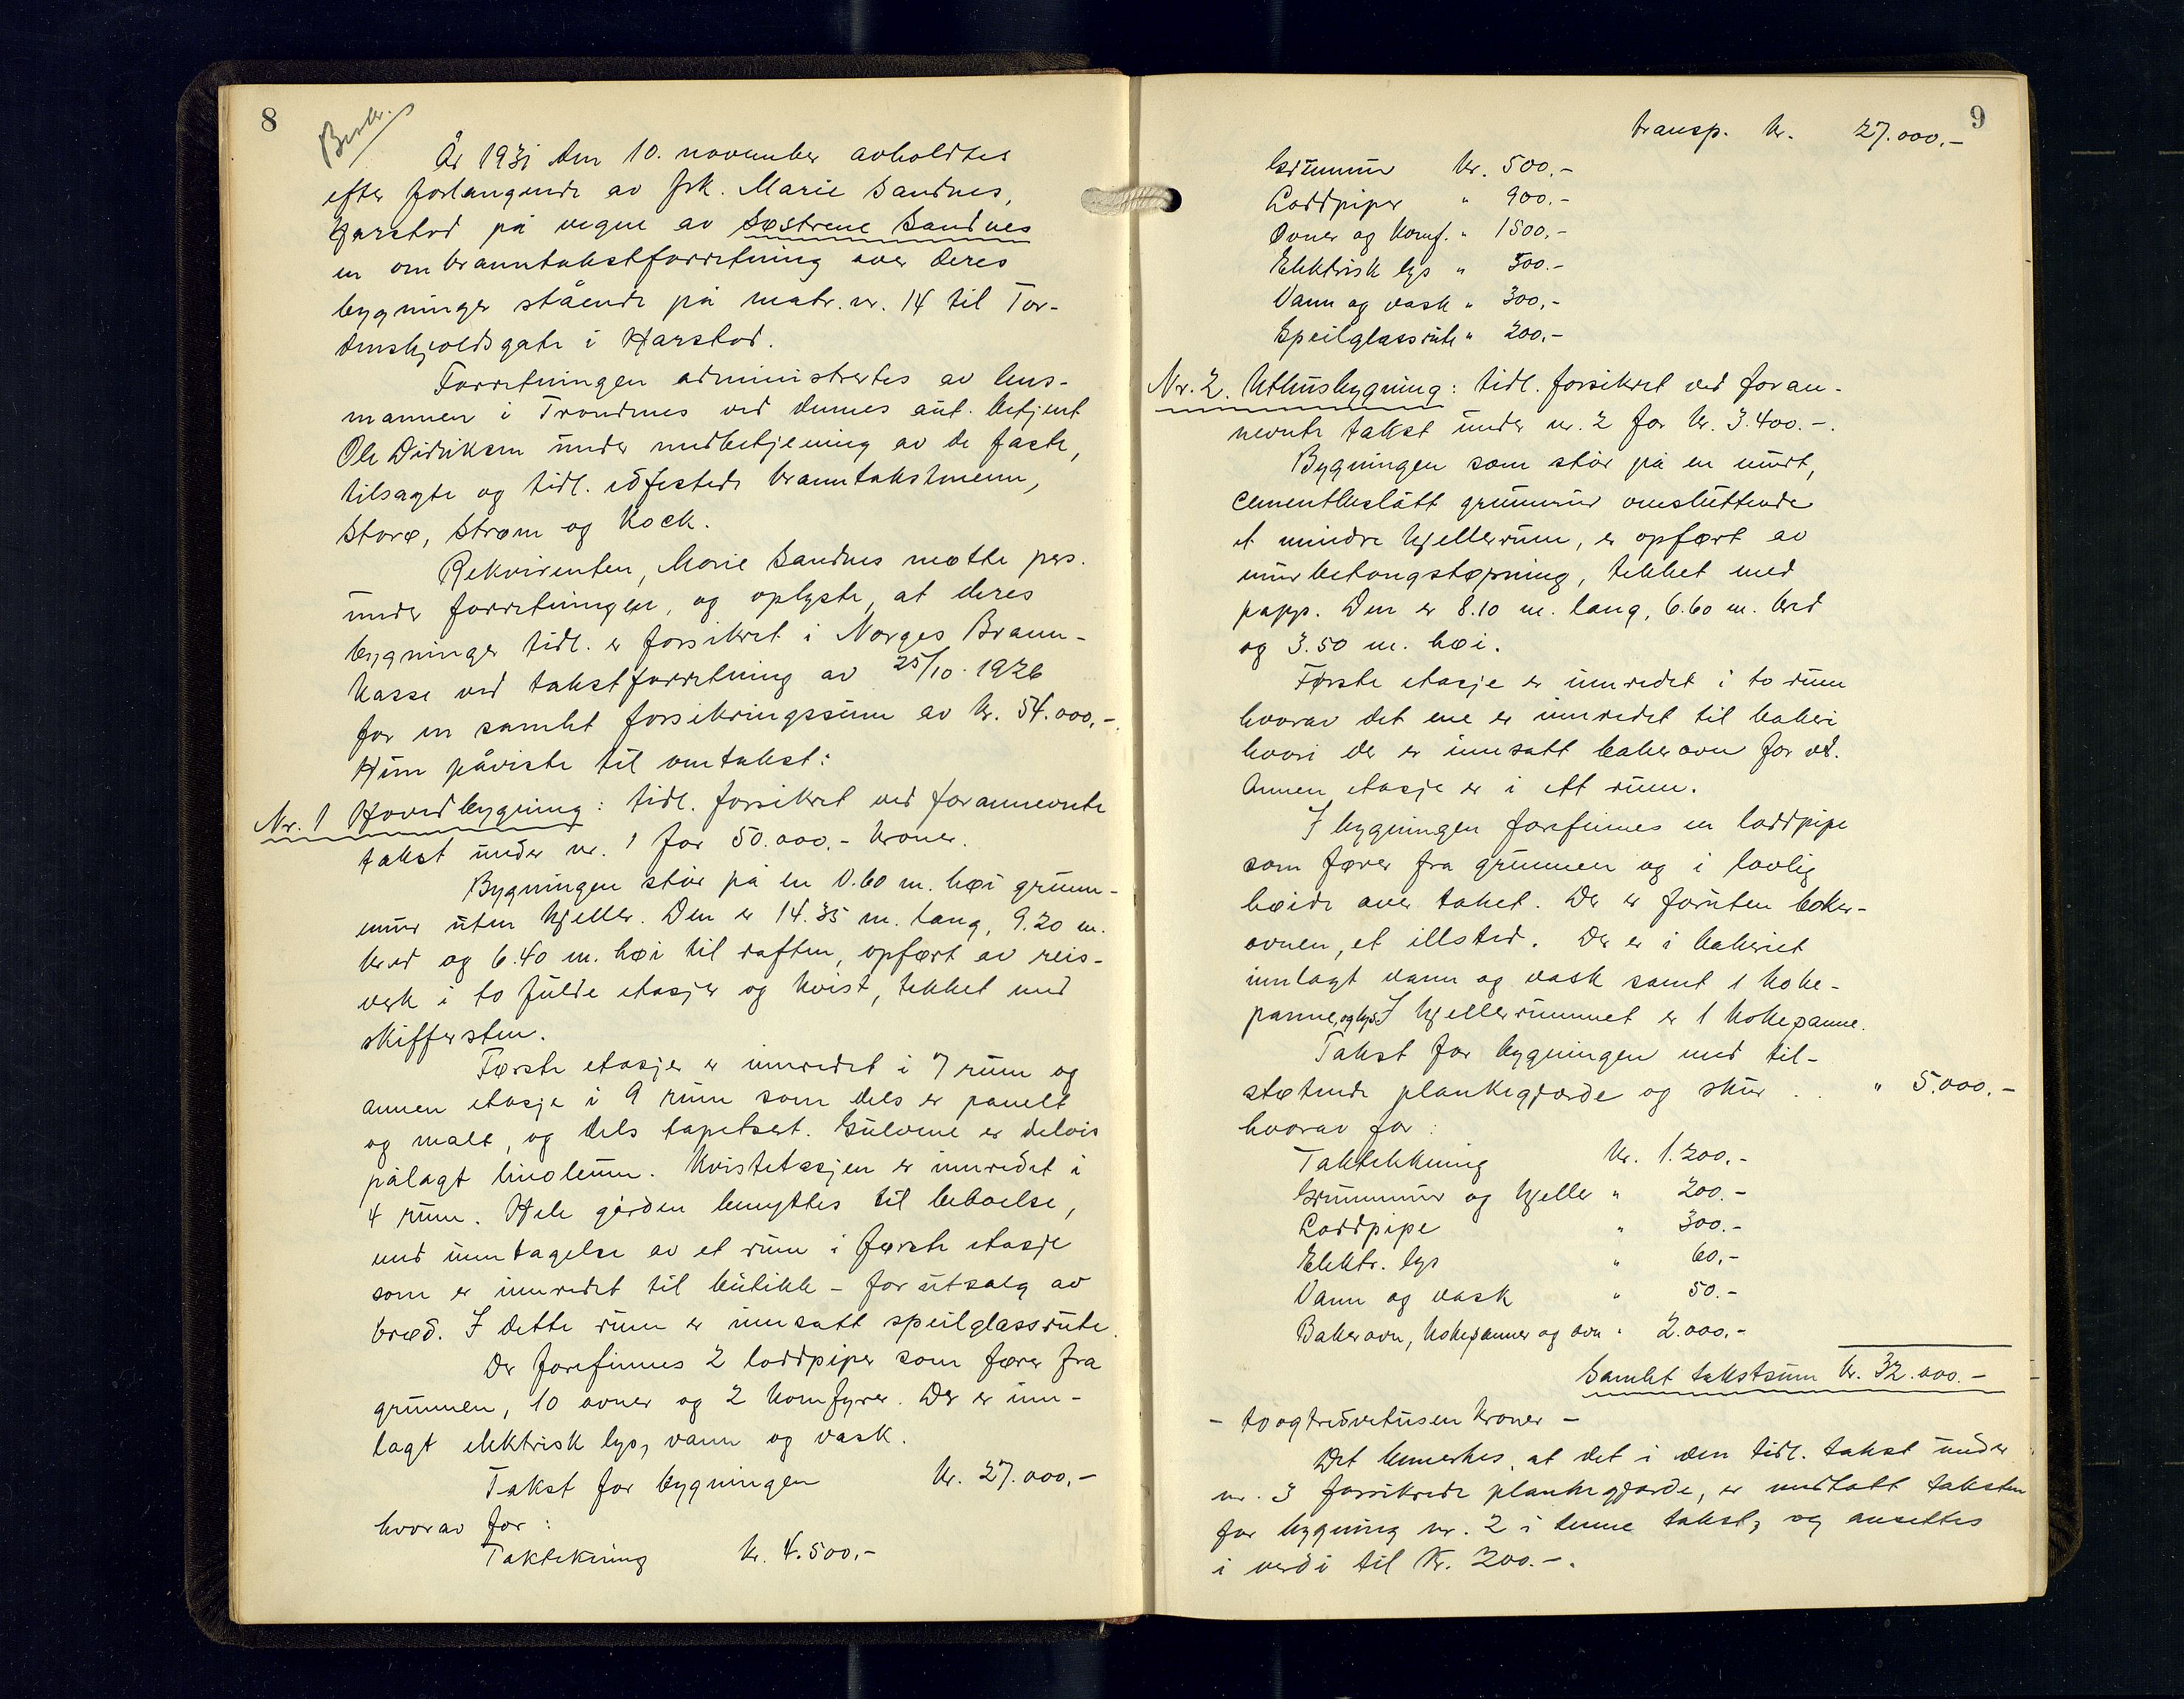 8
Beskr.
År 1931 den 10. november avholdtes
efter forlangende av frk. Marie Sandnes,
Harstad på vegne av Søstrene Sandnes
en ombranntakstforretning over deres
bygninger stående på matr. nr. 14 til Tor-
denskjoldsgate i Harstad.
Forretningen administrertes av lens-
mannen i Trondenes ved dennes aut. betjent
Ole Didriksen under medbetjening av de faste,
tilsagte og tidl. edfestede branntakstmenn,
Storø, Strøm og Kock.
Rekvirenten, Marie Sandnes møtte pers.
under forretningen, og oplyste, at deres
bygninger tidl. er forsikret i Norges Brann-
kasse ved takstforretning av 25/10. 1926
for en samlet forsikringssum av kr. 54.000,-.
Hun påviste til omtakst:
Nr. 1 Hovedbygning: tidl. forsikret ved forannevnte
takst under nr. 1 for 50.000.- kroner.
Bygningen står på en 0.60 m. høi grunn-
mur uten kjeller. Den er 14.35 m. lang, 9.20 m.
bred og 6.40 m. høi til raften, opført av reis-
verk i to fulde etasjer og kvist, tekket med
skiffersten.
Første etasje er innredet i 7 rum og
annen etasje i 9 rum som dels er panelt
og malt, og dels tapetsert. Gulvene er delvis
pålagt linoleum. Kvistetasjen er innredet i
4 rum. Hele gården benyttes til beboelse,
med unntagelse av et rum i første etasje
som er innredet til butikk - for utsalg av
brød. I dette rum er innsatt speilglassrute.
Der forefinnes 2 loddpiper som fører fra
grunnen, 10 ovner og 2 komfyrer. Der er inn-
lagt elektrisk lys, vann og vask.
Takst for bygningen kr. 27.000,-
hvorav for:
Taktekning kr. 4.500,-
9
transp. kr. 27.000,-
Grunnmur kr. 500,-
Loddpiper " 900,-
Ovner og komf. " 1500,-
Elektrisk lys " 500.-
Vann og vask " 300,-
Speilglassrute " 200,-
Nr. 2. Uthusbygning: tidl. forsikret ved foran-
nevnte takst under nr. 2 for kr. 3.400.-.
Bygningen som står på en murt,
cementbeslått grunnmur omsluttende
et mindre kjellerrum, er opført av
murbetongstøpning, tekket med
papp. Den er 8.10 m. lang, 6.60 m. bred
og 3.50 m. høi.
Første etasje er innredet i to rum
hvorav det ene er innredet til bakeri
hvori der er innsatt bakerovn for ved.
Annen etasje er i ett rum.
I bygningen forefinnes en loddpipe
som fører fra grunnen og i lovlig
høide over taket. Der er foruten baker-
ovnen, et illsted. Der er i bakeriet
innlagt vann og vask samt 1 koke-
panne, og lys. I kjellerrummet er 1 kokepanne.
Takst for bygningen med til-
støtende plankegjærde og skur . . " 5.000,-
hvorav for:
Taktekkning kr. 1.200,-
Grunnmur og kjeller " 200.-
Loddpipe " 300.-
Elektr. lys " 60,-
Vann og vask " 50.-
Bakerovn, kokepanner og ovn " 2.000,-
Samlet takstsum kr. 32.000.-
- toogtredvetusen kroner -
Det bemerkes, at det i den tidl. takst under
nr. 3 forsikrede plankegjærde, er medtatt taksten
for bygning nr. 2 i denne takst, og ansettes
i verdi til Kr. 200.-.